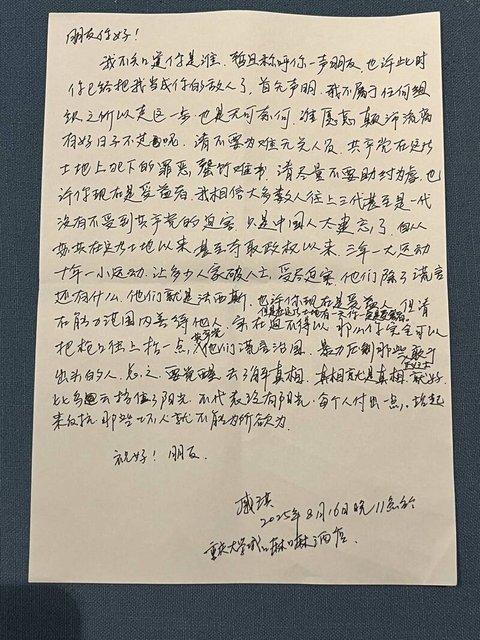 朋友你好！
我不知道你是谁，暂且称呼你一声朋友，也许此时
你已经把我当成你的敌人了，首先声明，我不属于任何组
织之所以走这一步也是无可奈何，谁愿意颠沛流离
有好日子不过呢，请不要为难元老人员，共产党在这片
土地上犯下的罪恶，罄竹难书，请尽量不要助纣为虐，也
许你现在是受益者，我相信大多数人往上三代甚至是一代
没有不受到共产党的迫害，只是中国人太健忘了，自从
共在这片土地以来甚至夺取政权以来，三年一大运动
十年一小运动，让多少人家破人亡，受尽迫害，他们除了谎言
还有什么，他们就是法西斯，也许你现在是受益人，但请
但是在这片土地有一天你一定是受害者
在能力范围内善待他人，实在迫不得以，那么你完全可以
把枪口往上抬一点，共产党他们谎言治国，暴力压制那些敢于
出头的人，总之，要觉醒，去了解真相，真相就是真相，就好
比乌云挡住了阳光，不代表没有阳光，每个人付出一点，站起
来反抗，那些坏人就不能为所欲为。
祝好！朋友。
戚洪
2025年8月16日晚11点于
重庆大学城